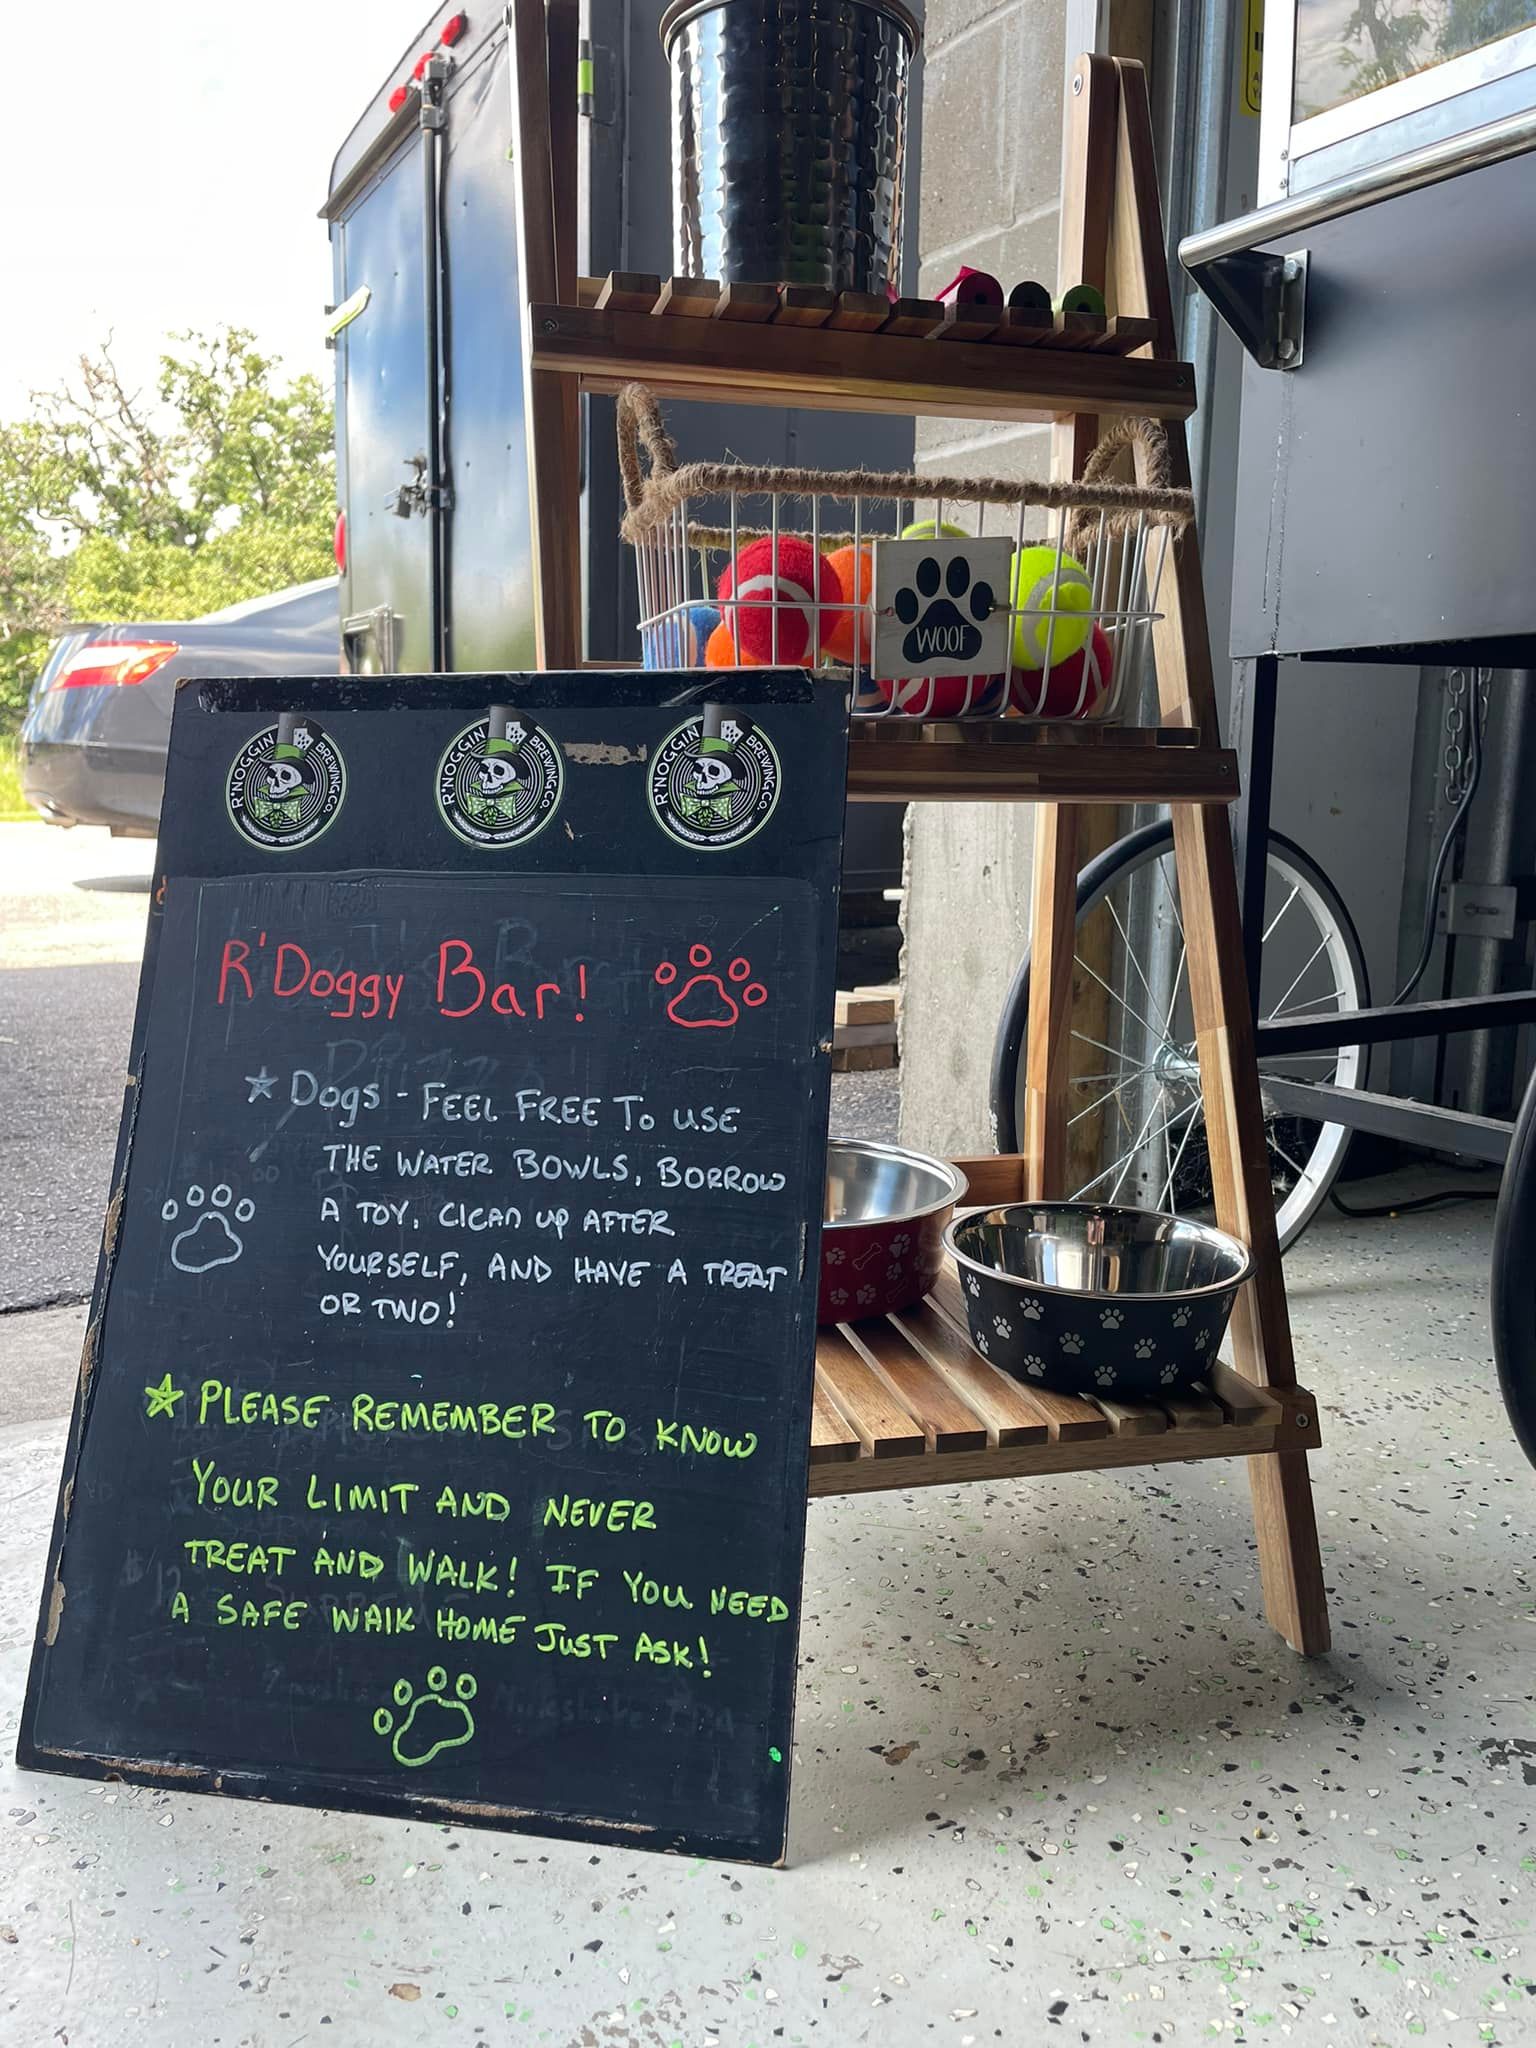 WOOF
R'NOGGIN BREWING CO.
R'NOGGIN BREWING CO.
R'NOGGIN BREWING CO.
R'Doggy Bar!
Dogs - FEEL FREE To USE
THE WATER BOWLS, BORROW
A TOY, CLEAn up AFTER
YOURSELF, AND HAVE A TREAT
OR TWO!
PLEASE REMEMBER TO KNOW
YOUR LIMIT AND NEVER
TREAT AND WALK! IF YOU NEED
A SAFE WALK HOME JUST ASK!